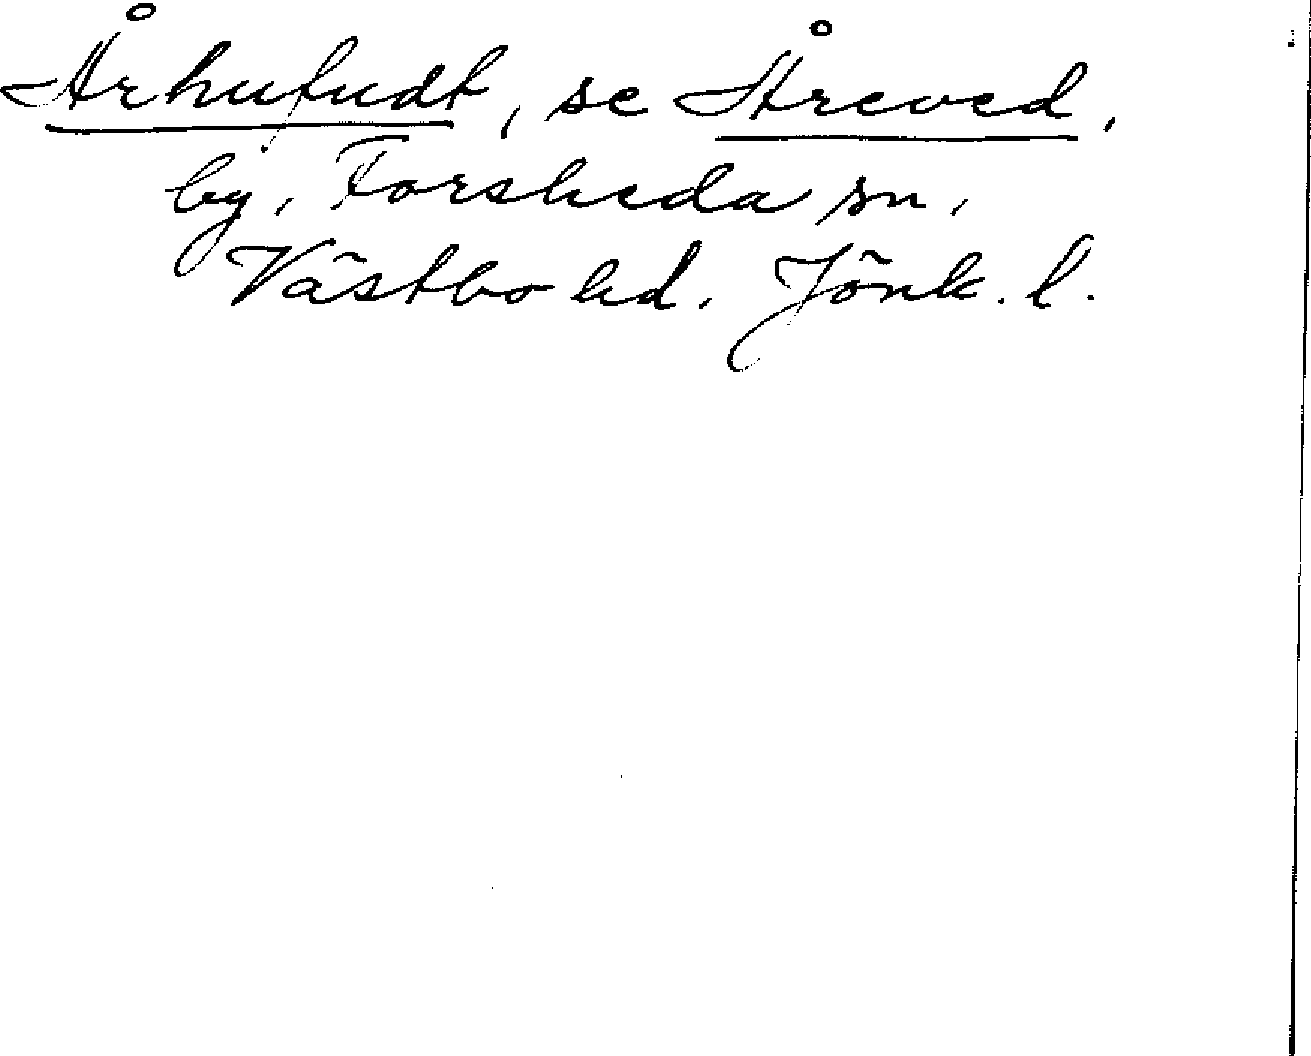 Århufudt, se Åreved,
by, Forsheda sn,
Västbo hd. Jönk. l.